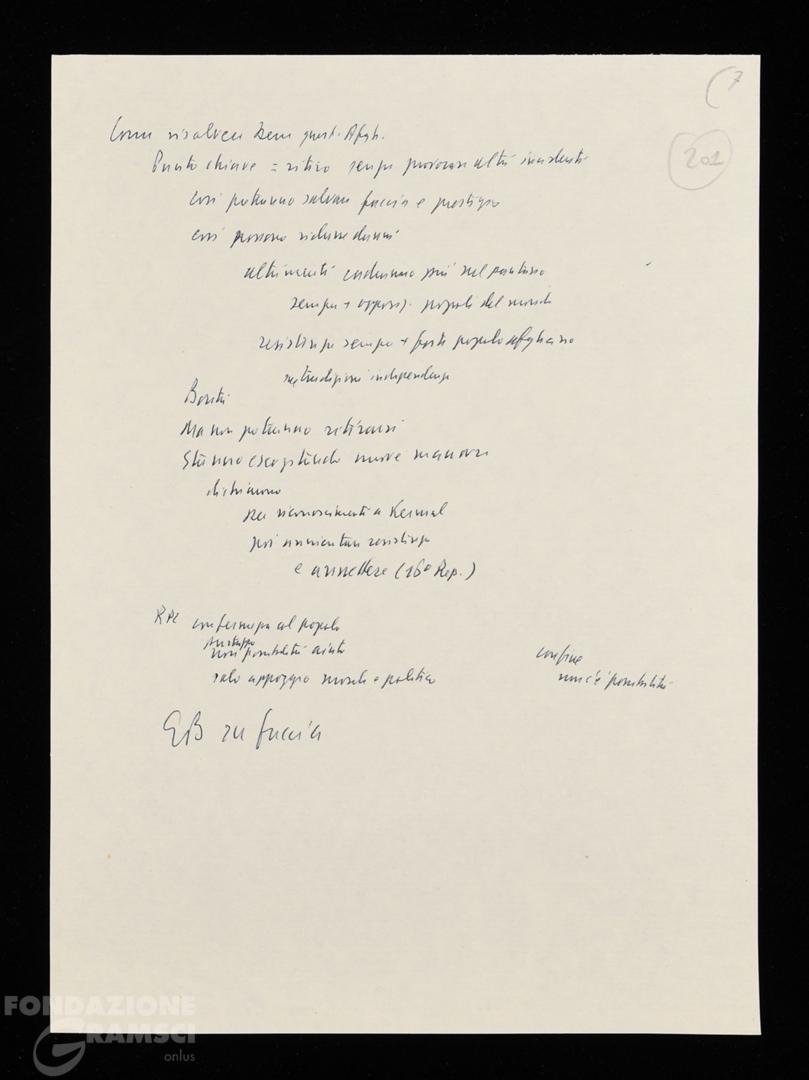 (7
201
Come risolvere bene quest. Afgh.
Punto chiave = ritiro senza provocare altri incidenti
così potranno salvare faccia e prestigio
così possono ridurre danni
altrimenti cadranno più nel pantano
sempre + opposiz. popoli del mondo
resistenza sempre + forte popolo afghano
sue tradizioni indipendenza
Ma non potranno ritirarsi
Stanno escogitando nuove manovre
riconoscimenti a Kermal
poi annientare resistenza
e annettere (16ª Rep.)
RPC
confermiamo al popolo
non possibilità aiuto
solo appoggio morale e politico
confine
non c'è possibilità
EB su faccia
FONDAZIONE
GRAMSCI
onlus